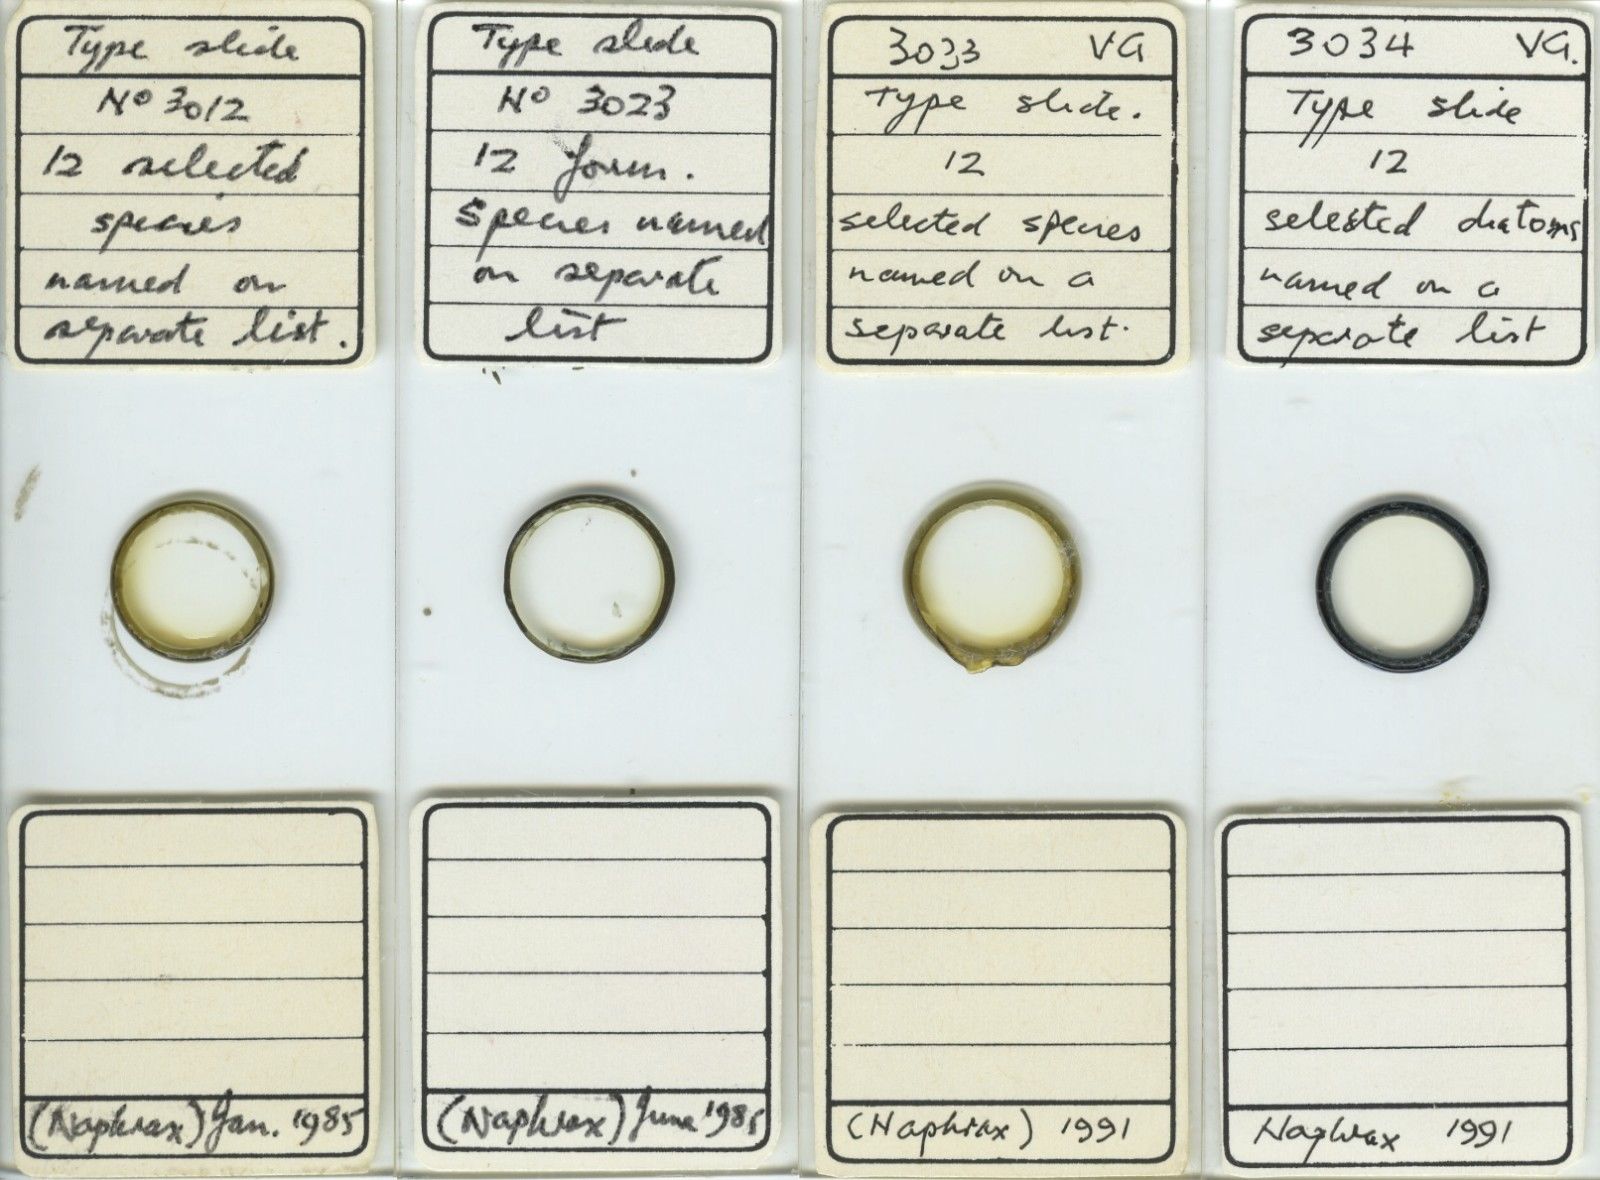 Type slide
Nº 3012
12 selected
species
named on
separate list.
(Naphrax) Jan. 1985
Type slide
Nº 3023
12 form.
Species named
on separate
list
(Naphrax) June 1985
3033 VG
Type slide.
12
selected species
named on a
separate list.
(Naphrax) 1991
3034 VG.
Type slide
12
selected diatoms
named on a
separate list
Naphrax 1991